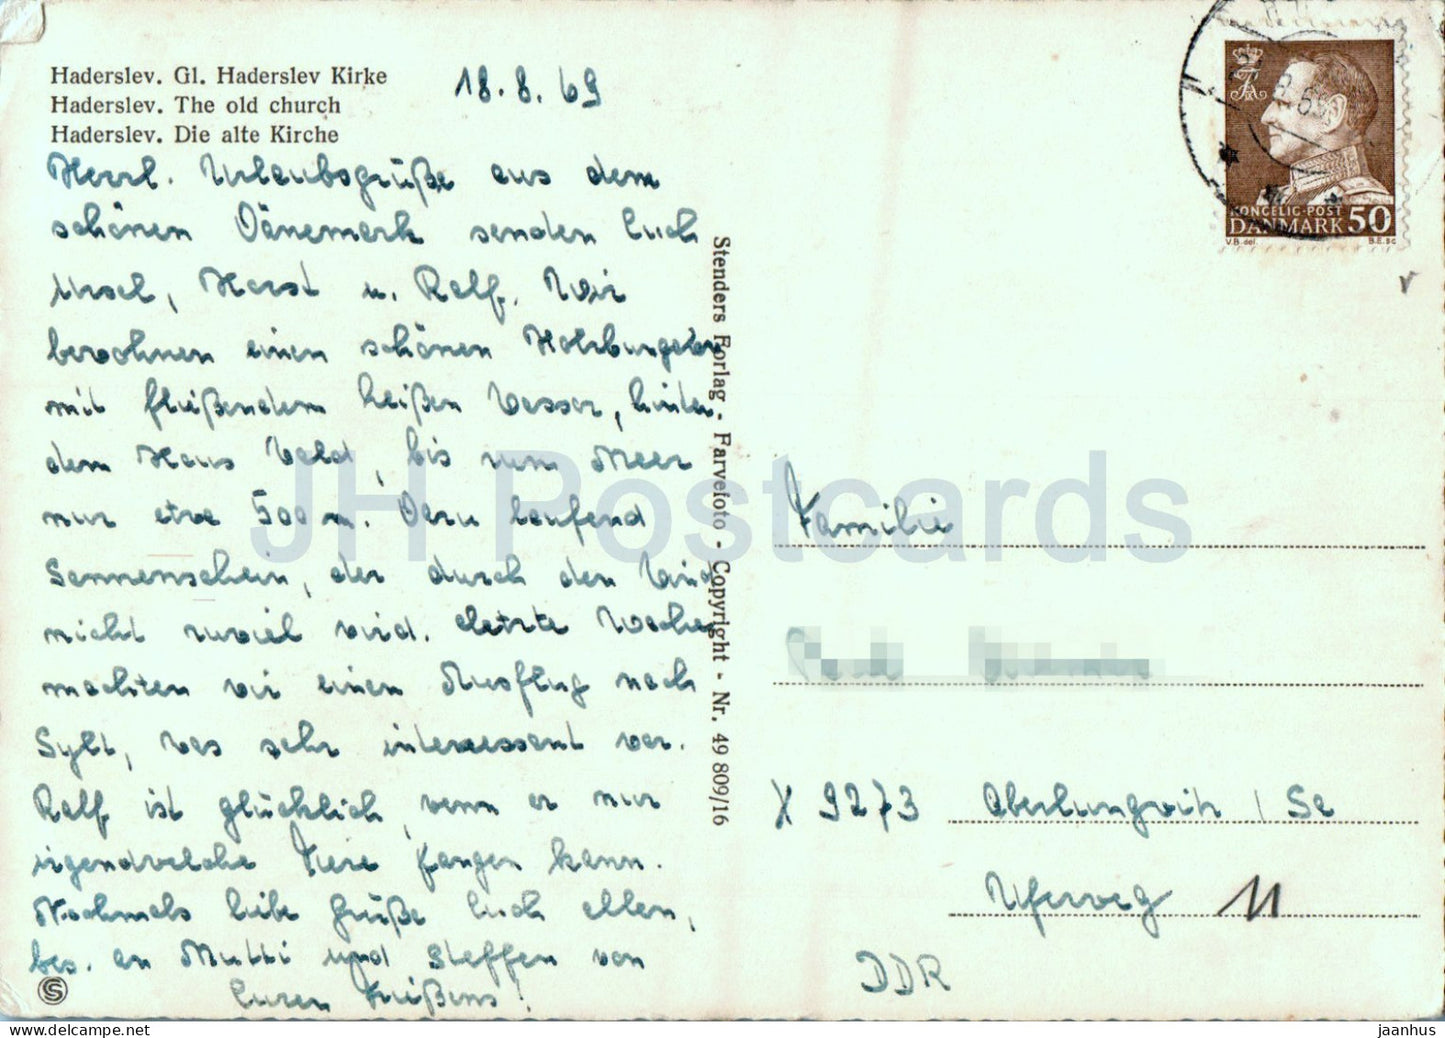 Haderslev. Gl. Haderslev Kirke
Haderslev. The old church
Haderslev. Die alte Kirche
18.8.69
Herzl. Urlaubsgrüße aus dem
schönen Dänemark senden Euch
Ursel, Horst u. Ralf. Wir
bewohnen einen schönen Holzbungalow
mit fließendem heißen Wasser, hinter
dem Haus Wald, bis zum Meer
nur etwa 500 m. Dazu laufend
Sonnenschein, der durch den Wind
nicht zuviel wird. Letzte Woche
machten wir einen Ausflug nach
Sylt, was sehr interessant war.
Ralf ist glücklich, wenn er nur
irgendwelche Tiere fangen kann.
Nochmals liebe Grüße Euch allen,
bes. an Mutti und Steffen von
Euren Meißens!
S
Stenders Forlag - Farvefoto - Copyright - Nr. 49 809/16
KONGELIG-POST
DANMARK 50
V.B. del.
B.E. sc
Familie
X 9273 Oberlungwitz / Sa
Uferweg 11
DDR
JH Postcards
jaanhus
delcampe.net